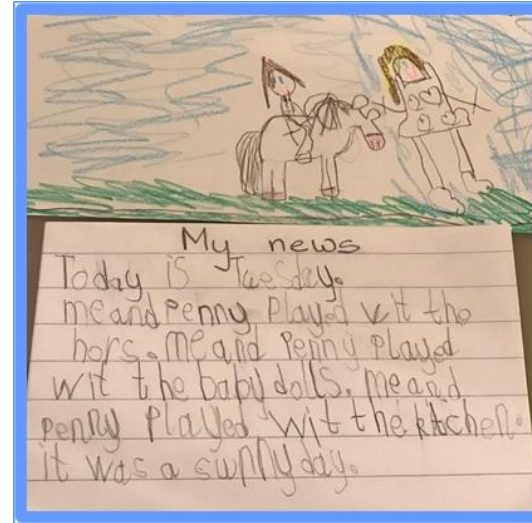 My news
Today is Tuesday.
me and Penny Played wit the
hors. me and Penny Played
wit the baby dolls. me and
penny Played wit the kitchen.
it was a sunny day.